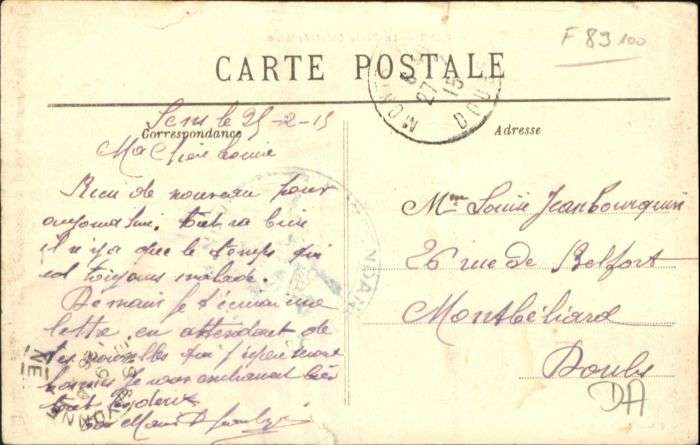 F 89 100
CARTE POSTALE
Sens le 25-2-15
Correspondance
Adresse
Ma Chère Louise
Rien de nouveau pour
aujourd'hui. tout va bien
il n'y a que le temps qui
est toujours malade.
Demain je t'écrirai une
lettre en attendant de
tes nouvelles que j'espère
bonnes je vous embrasse bien
tout
Mme Louise Jeanbourquin
26 rue de Belfort
Montbéliard
Doubs
DA
27
15